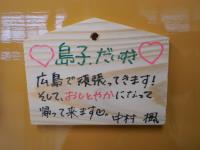 島子、だいすき
広島で頑張ってきます!
そして、おしとやかになって
帰って来ます。
中村 楓